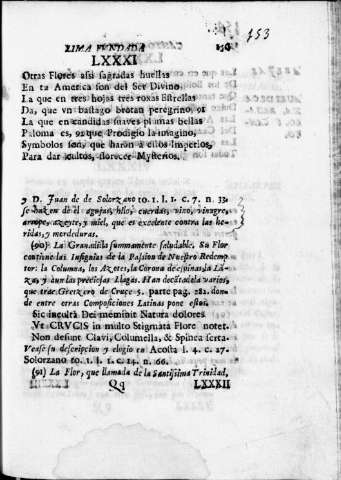 153
LIMA FUNDADA
LXXXI
Otras Flores assi sagradas huellas
En ta America son del Ser Divino
La que en tres hojas tres roxas Estrellas
Da, que vn bastago brotan peregrino, 91
La que en candidas suaves plumas bellas
Paloma es, 92 que Prodigio la imagino,
Symbolos son, que haràn à essos Imperios,
Para dar cultos, florecer Mysterios.
D. Juan de de Solorzano to. 1. l. 1. c. 7. n. 33.
se hazen de èl agujas, hilo, cuerdas, vino, vinagre,
arrope, azeyte, y miel, que es excelente contra las he-
ridas, y mordeduras.
(90) La Granadilla summamente saludable. Su Flor
contiene las Insignias de la Passion de Nuestro Redemp-
tor: la Columna, los Azotes, la Corona de espinas, la Lã-
za, y aun las preciosas Llagas. Han docta de la varios,
que trae Gretzero de Cruce 5. parte pag. 282. don-
de entre otras Composiciones Latinas pone estos.
Sic insculta Dei meminit Natura dolores
Vt CRVCIS in multo Stigmata Flore notet.
Non desunt Clavi, Columella, & Spinea serta.
Vease su descripcion y elogio en Acosta l. 4. c. 27.
Solorzano to. 1. l. 1. c. 24. n. 66.
(91) La Flor, que llamada de la Santissima Trinidad,
Qq LXXXII